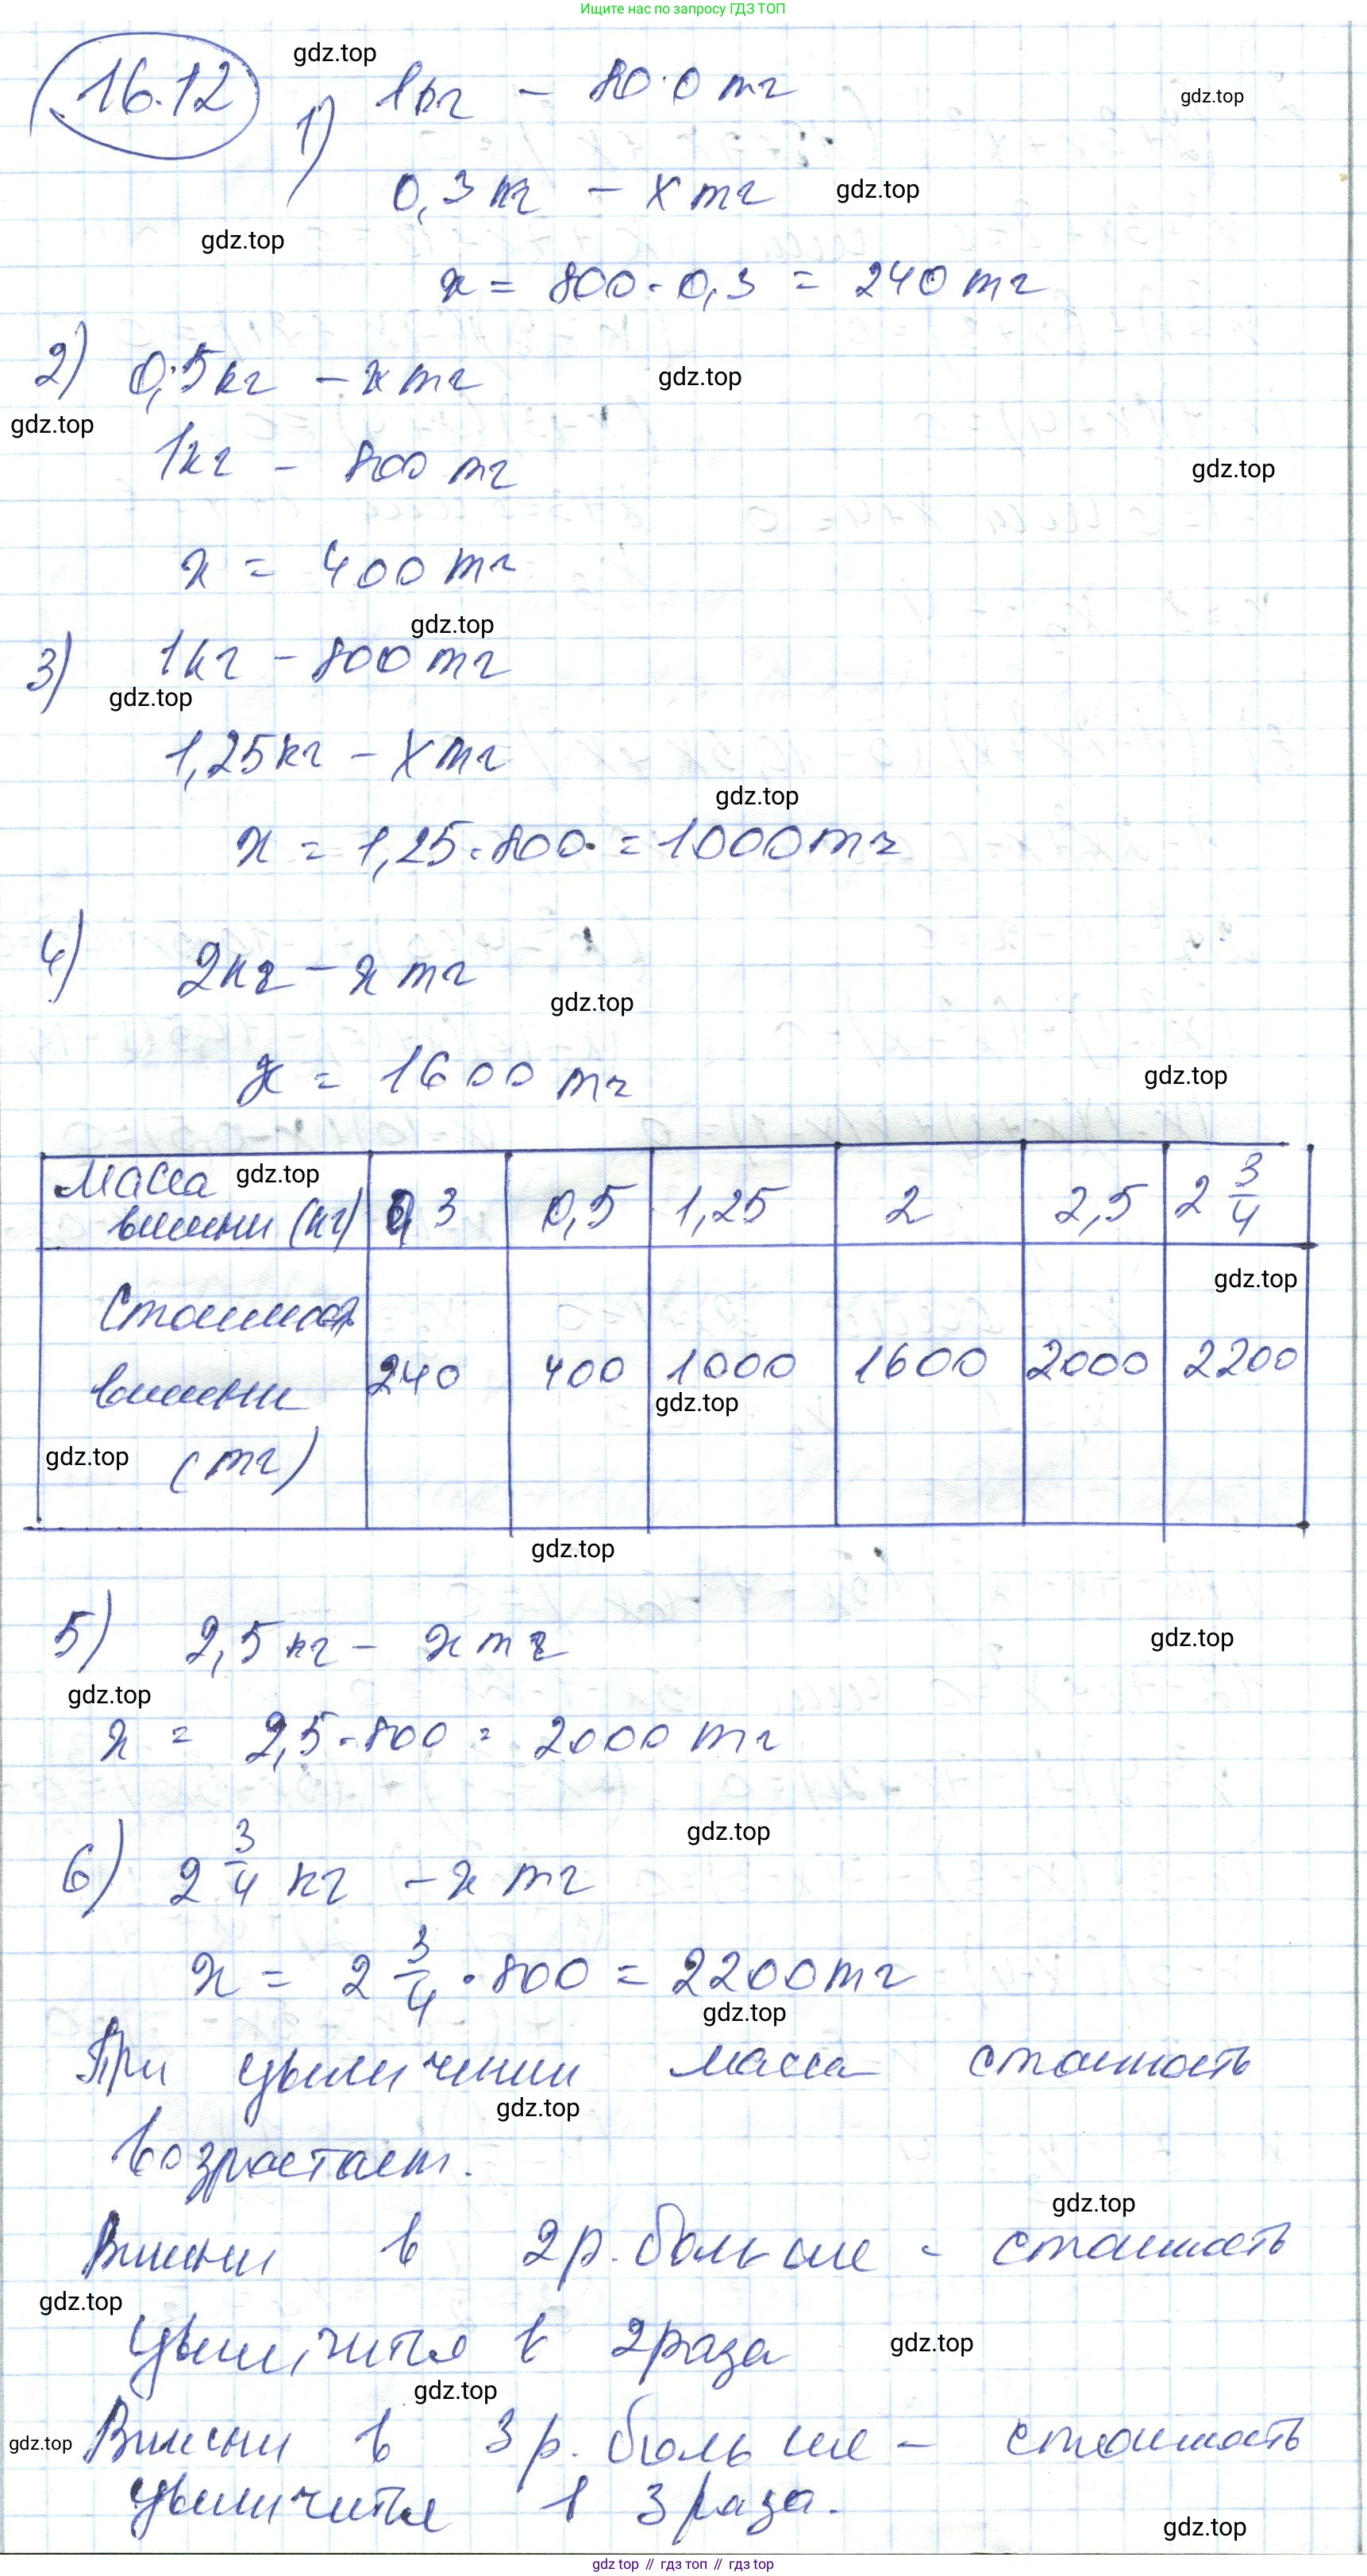 Ищите нас по запросу ГДЗ ТОП
16.12
gdz.top
1) 1кг - 80·0 тг
gdz.top
0,3 кг - х тг
gdz.top
gdz.top
х = 800·0,3 = 240 тг
2) 0,5 кг - х тг
gdz.top
gdz.top
1кг - 800 тг
gdz.top
х = 400 тг
gdz.top
3) 1кг - 800 тг
gdz.top
1,25кг - х тг
gdz.top
х = 1,25·800 = 1000 тг
4) 2кг - х тг
gdz.top
х = 1600 тг
gdz.top
Масса gdz.top
вишни (кг) 0,3 0,5 1,25 2 2,5 2 3/4
gdz.top
Стоимост
вишни 240 400 1000 1600 2000 2200
gdz.top
gdz.top (тг)
gdz.top
5) 2,5 кг - х тг
gdz.top
gdz.top
х = 2,5·800 = 2000 тг
gdz.top
6) 2 3/4 кг - х тг
х = 2 3/4 · 800 = 2200 тг
gdz.top
При увеличении масса стоимость
gdz.top
возрастает.
gdz.top
Вишни в 2 р. больше - стоимость
gdz.top
увеличится в 2 раза
gdz.top
gdz.top
gdz.top Вишни в 3 р. больше - стоимость
увеличится в 3 раза.
gdz.top
gdz top // гдз топ // гдз top